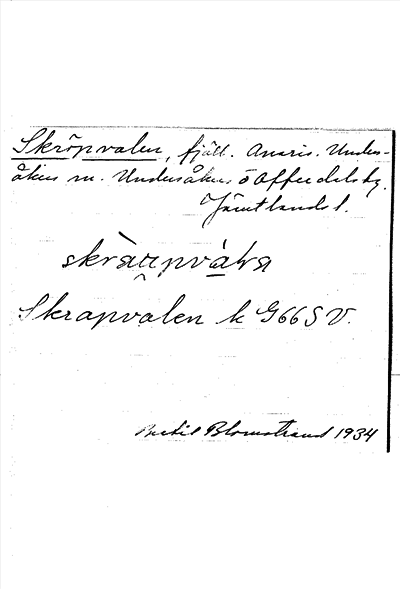 Skröpvalen, fjäll. Anaris. Unders-
åkers sn. Undersåkers o Offerdals tg.
Jämtlands l.
skràppváɫa
Skrapvalen k G66SV.
Bertil Blomstrand 1934